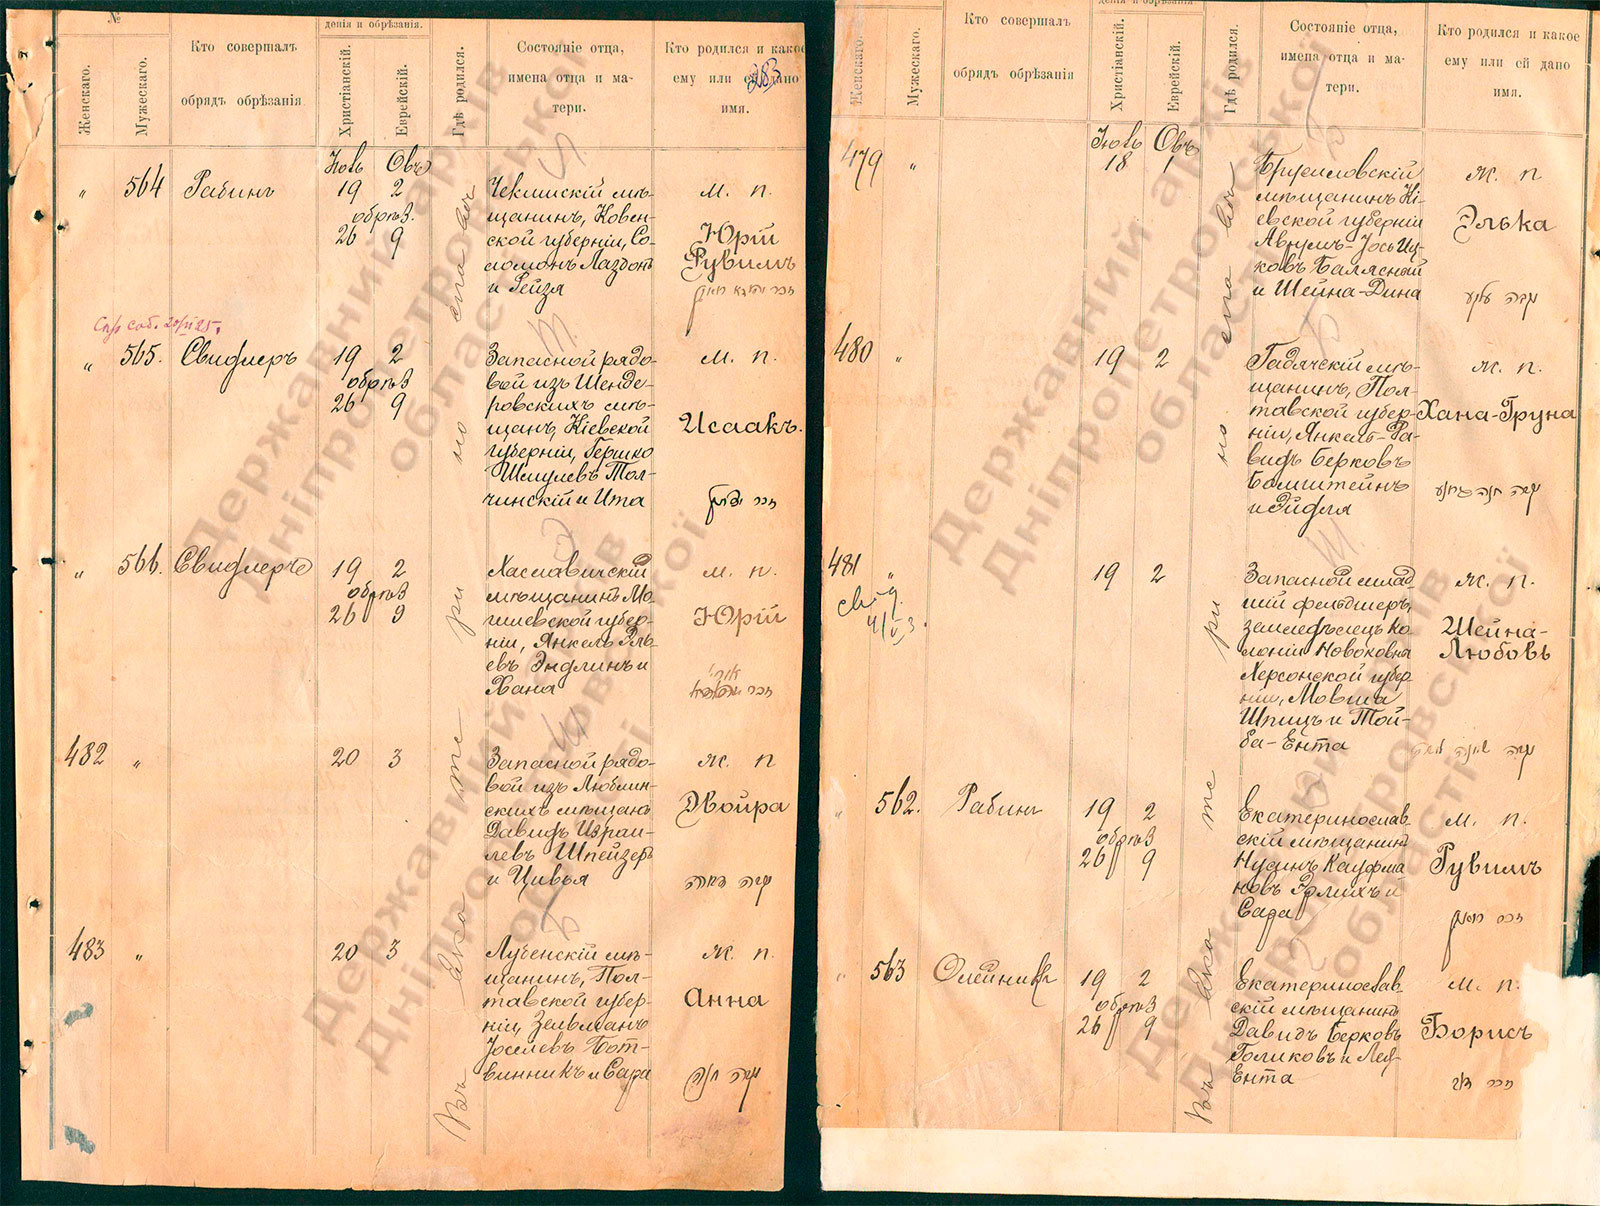 №
денія и обрѣзанія.
Женскаго.
Мужескаго.
Кто совершалъ
обрядъ обрѣзанія.
Христіанскій.
Еврейскій.
Гдѣ родился.
Состояніе отца,
имена отца и ма-
тери.
Кто родился и какое
ему или ей дано
имя.
283
Нояб Овъ
„ 564 Рабинъ 19 2
обрѣз.
26 9
мѣ-
щанинъ, Ковен-
ской губерніи, Со-
ломонъ Лаздонъ
и Рейзя
м. п.
Юрій
Рувимъ
„ 565. Свифлеръ 19 2
обрѣз
26 9
Запасной рядо-
вой изъ Шенде-
ровскихъ мѣ-
щанъ, Кіевской
губерніи, Гершко
Шмулевъ Тол-
чинскій и Ита
м. п.
Исаакъ.
„ 566. Свифлеръ 19 2
обрѣз
26 9
Хаславичскій
мѣщанинъ Мо-
гилевской губер-
ніи, Янкель Эль-
евъ Эндлинъ и
Хана
м. п.
Юрій
482 „ 20 3
Запасной рядо-
вой изъ Люблин-
скихъ мѣщанъ
Давидъ Израи-
левъ Шпейзеръ
и Цивья
ж. п
Двойра
483 „ 20 3
Лубенскій мѣ-
щанинъ, Пол-
тавской губер-
ніи, Зельманъ
Іоселевъ Бот-
винникъ и Сара
ж. п.
Анна
Въ Екатеринославѣ
денія и обрѣзанія
Женскаго.
Мужескаго.
Кто совершалъ
обрядъ обрѣзанія
Христіанскій.
Еврейскій.
Гдѣ родился.
Состояніе отца,
имена отца и ма-
тери.
Кто родился и какое
ему или ей дано
имя.
Ноябъ Овъ
479 „ 18 1
Брусиловскій
мѣщанинъ Кі-
евской губерніи
Аврумъ-Іось Иц-
ковъ Балясный
и Шейна-Дина
ж. п
Элька
480 „ 19 2
Гадячскій мѣ-
щанинъ, Пол-
тавской губер-
ніи, Янкель-Да-
видъ Берковъ
Бомштейнъ
и Эйфля
ж. п.
Хана-Груна
481 „ 19 2
Запасной млад
шій фельдшеръ,
земледѣлецъ ко-
лоніи Новоковна
Херсонской губер
ніи, Мовша
Шпицъ и Той-
ба-Ента
ж. п.
Шейна-
Любовь
„ 562. Рабинъ 19 2
обрѣз
26 9
Екатеринослав
скій мѣщанинъ
Нусинъ Кауфма
новъ Эрлихъ и
Сара
м. п.
Рувимъ
„ 563 Олейникъ 19 2
обрѣз
26 9
Екатеринослав-
скій мѣщанинъ
Давидъ Берковъ
Голиковъ и Лея-
Ента
м. п.
Борисъ
Въ Екатеринославѣ
Державний архів
Дніпропетровської
області
Державний архів
Дніпропетровської
області
Державний архів
Дніпропетровської
області
Державний архів
Дніпропетровської
області